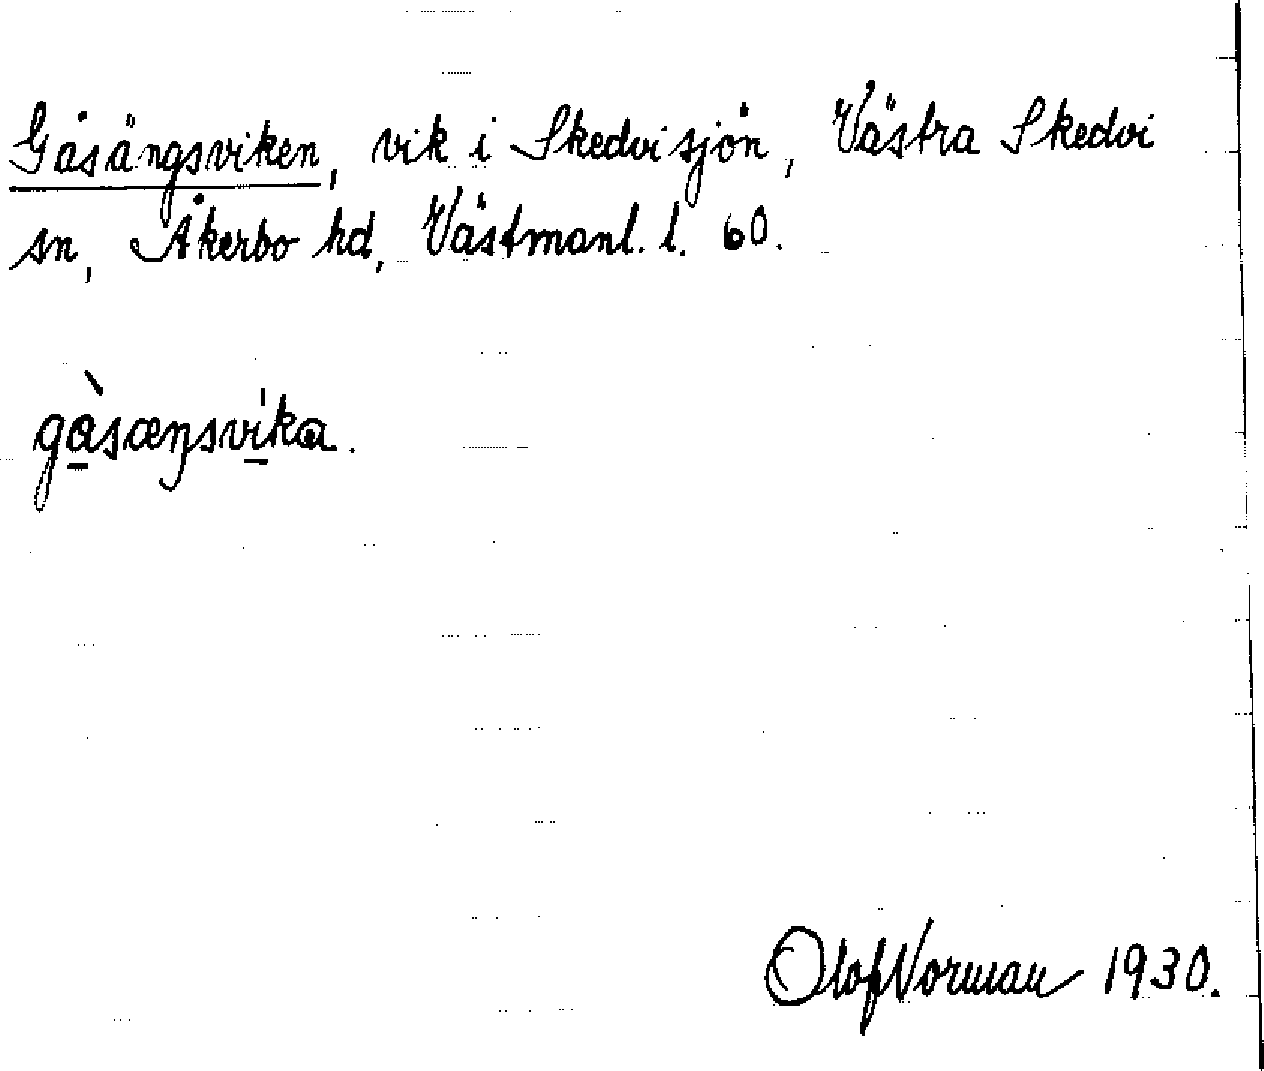 Gåsängsviken, vik i Skedvisjön, Västra Skedvi
sn, Åkerbo hd, Västmanl. l. 60.
gå̀sæŋsvika.
Olof Norman 1930.